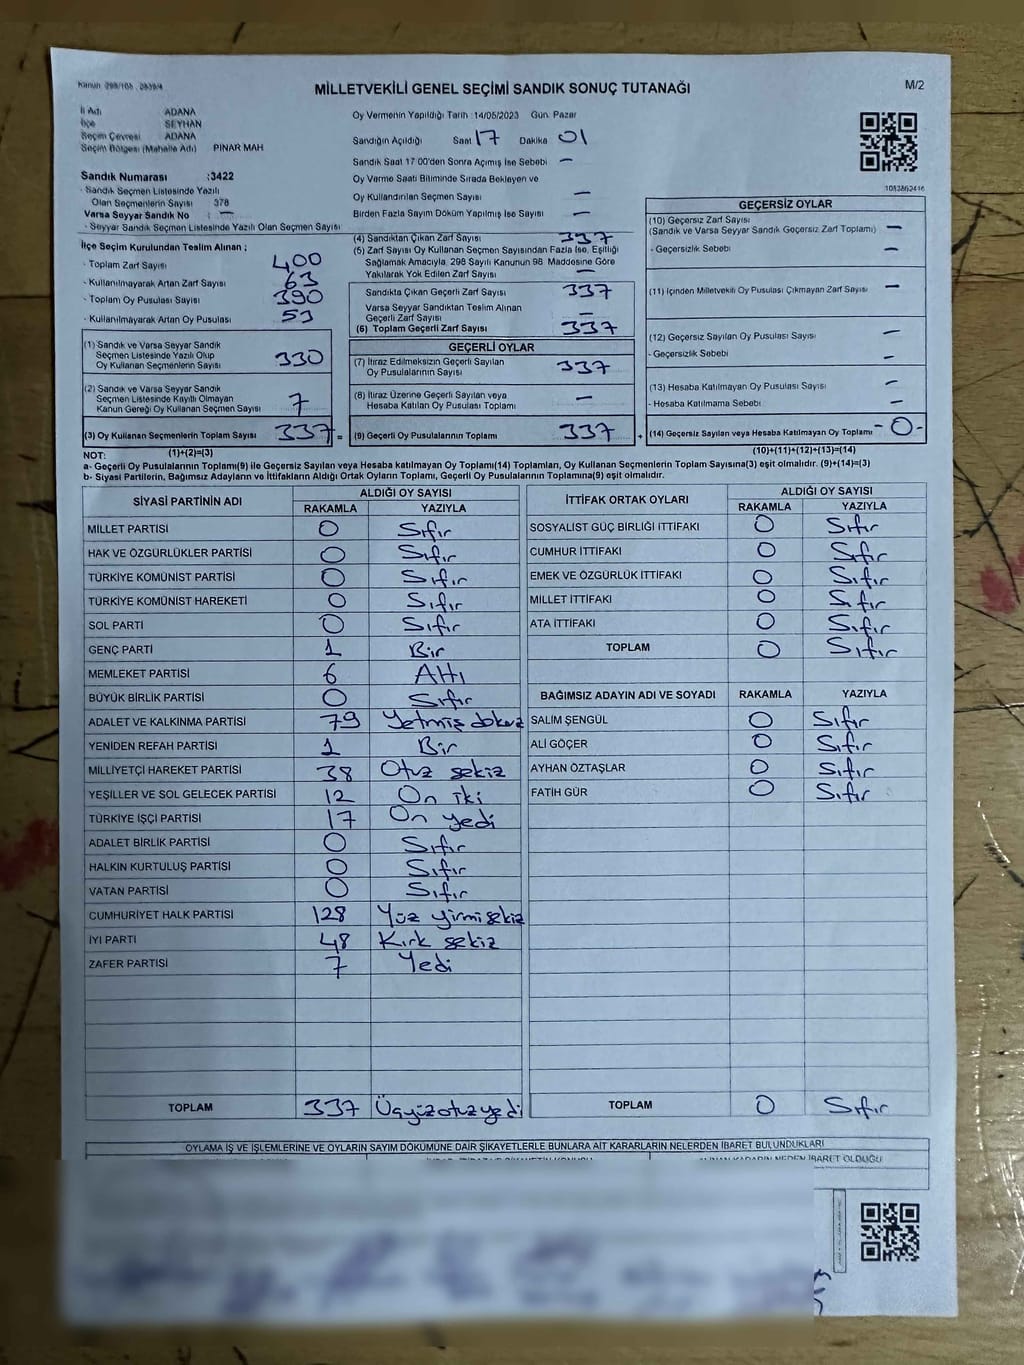 Kanun 298/105 , 2839/4
MİLLETVEKİLİ GENEL SEÇİMİ SANDIK SONUÇ TUTANAĞI
M/2
İl Adı ADANA
İlçe SEYHAN
Seçim Çevresi ADANA
Seçim Bölgesi (Mahalle Adı) PINAR MAH
Sandık Numarası :3422
- Sandık Seçmen Listesinde Yazılı
Olan Seçmenlerin Sayısı 378
Varsa Seyyar Sandık No : —
- Seyyar Sandık Seçmen Listesinde Yazılı Olan Seçmen Sayısı
İlçe Seçim Kurulundan Teslim Alınan ;
- Toplam Zarf Sayısı 400
- Kullanılmayarak Artan Zarf Sayısı 63
- Toplam Oy Pusulası Sayısı 390
- Kullanılmayarak Artan Oy Pusulası 53
(1) Sandık ve Varsa Seyyar Sandık
Seçmen Listesinde Yazılı Olup
Oy Kullanan Seçmenlerin Sayısı 330
(2) Sandık ve Varsa Seyyar Sandık
Seçmen Listesinde Kayıtlı Olmayan
Kanun Gereği Oy Kullanan Seçmen Sayısı 7
(3) Oy Kullanan Seçmenlerin Toplam Sayısı 337 =
(1)+(2)=(3)
Oy Vermenin Yapıldığı Tarih :14/05/2023 Gün: Pazar
Sandığın Açıldığı Saat 17 Dakika 01
Sandık Saat 17 00'den Sonra Açılmış İse Sebebi —
Oy Verme Saati Bitiminde Sırada Bekleyen ve
Oy Kullandırılan Seçmen Sayısı —
Birden Fazla Sayım Döküm Yapılmış İse Sayısı —
(4) Sandıktan Çıkan Zarf Sayısı 337
(5) Zarf Sayısı Oy Kullanan Seçmen Sayısından Fazla İse, Eşitliği
Sağlamak Amacıyla, 298 Sayılı Kanunun 98 Maddesine Göre
Yakılarak Yok Edilen Zarf Sayısı —
Sandıkta Çıkan Geçerli Zarf Sayısı 337
Varsa Seyyar Sandıktan Teslim Alınan
Geçerli Zarf Sayısı —
(6) Toplam Geçerli Zarf Sayısı 337
GEÇERLİ OYLAR
(7) İtiraz Edilmeksizin Geçerli Sayılan
Oy Pusulalarının Sayısı 337
(8) İtiraz Üzerine Geçerli Sayılan veya
Hesaba Katılan Oy Pusulası Toplamı —
(9) Geçerli Oy Pusulalarının Toplamı 337 +
1083862416
GEÇERSİZ OYLAR
(10) Geçersiz Zarf Sayısı
(Sandık ve Varsa Seyyar Sandık Geçersiz Zarf Toplamı) —
- Geçersizlik Sebebi —
(11) İçinden Milletvekili Oy Pusulası Çıkmayan Zarf Sayısı —
(12) Geçersiz Sayılan Oy Pusulası Sayısı —
- Geçersizlik Sebebi —
(13) Hesaba Katılmayan Oy Pusulası Sayısı —
- Hesaba Katılmama Sebebi —
(14) Geçersiz Sayılan veya Hesaba Katılmayan Oy Toplamı -0-
(10)+(11)+(12)+(13)=(14)
NOT:
a- Geçerli Oy Pusulalarının Toplamı(9) ile Geçersiz Sayılan veya Hesaba katılmayan Oy Toplamı(14) Toplamları, Oy Kullanan Seçmenlerin Toplam Sayısına(3) eşit olmalıdır. (9)+(14)=(3)
b- Siyasi Partilerin, Bağımsız Adayların ve İttifakların Aldığı Ortak Oyların Toplamı, Geçerli Oy Pusulalarının Toplamına(9) eşit olmalıdır.
SİYASİ PARTİNİN ADI ALDIĞI OY SAYISI
RAKAMLA YAZIYLA
MİLLET PARTİSİ 0 Sıfır
HAK VE ÖZGÜRLÜKLER PARTİSİ 0 Sıfır
TÜRKİYE KOMÜNİST PARTİSİ 0 Sıfır
TÜRKİYE KOMÜNİST HAREKETİ 0 Sıfır
SOL PARTİ 0 Sıfır
GENÇ PARTİ 1 Bir
MEMLEKET PARTİSİ 6 Altı
BÜYÜK BİRLİK PARTİSİ 0 Sıfır
ADALET VE KALKINMA PARTİSİ 79 Yetmiş dokuz
YENİDEN REFAH PARTİSİ 1 Bir
MİLLİYETÇİ HAREKET PARTİSİ 38 Otuz sekiz
YEŞİLLER VE SOL GELECEK PARTİSİ 12 On iki
TÜRKİYE İŞÇİ PARTİSİ 17 On yedi
ADALET BİRLİK PARTİSİ 0 Sıfır
HALKIN KURTULUŞ PARTİSİ 0 Sıfır
VATAN PARTİSİ 0 Sıfır
CUMHURİYET HALK PARTİSİ 128 Yüz yirmi sekiz
İYİ PARTİ 48 Kırk sekiz
ZAFER PARTİSİ 7 Yedi
TOPLAM 337 Üçyüzotuzyedi
İTTİFAK ORTAK OYLARI ALDIĞI OY SAYISI
RAKAMLA YAZIYLA
SOSYALİST GÜÇ BİRLİĞİ İTTİFAKI 0 Sıfır
CUMHUR İTTİFAKI 0 Sıfır
EMEK VE ÖZGÜRLÜK İTTİFAKI 0 Sıfır
MİLLET İTTİFAKI 0 Sıfır
ATA İTTİFAKI 0 Sıfır
TOPLAM 0 Sıfır
BAĞIMSIZ ADAYIN ADI VE SOYADI RAKAMLA YAZIYLA
SALİM ŞENGÜL 0 Sıfır
ALİ GÖÇER 0 Sıfır
AYHAN ÖZTAŞLAR 0 Sıfır
FATİH GÜR 0 Sıfır
TOPLAM 0 Sıfır
OYLAMA İŞ VE İŞLEMLERİNE VE OYLARIN SAYIM DÖKÜMÜNE DAİR ŞİKAYETLERLE BUNLARA AİT KARARLARIN NELERDEN İBARET BULUNDUKLARI
KARARIN NEDEN İBARET OLDUĞU